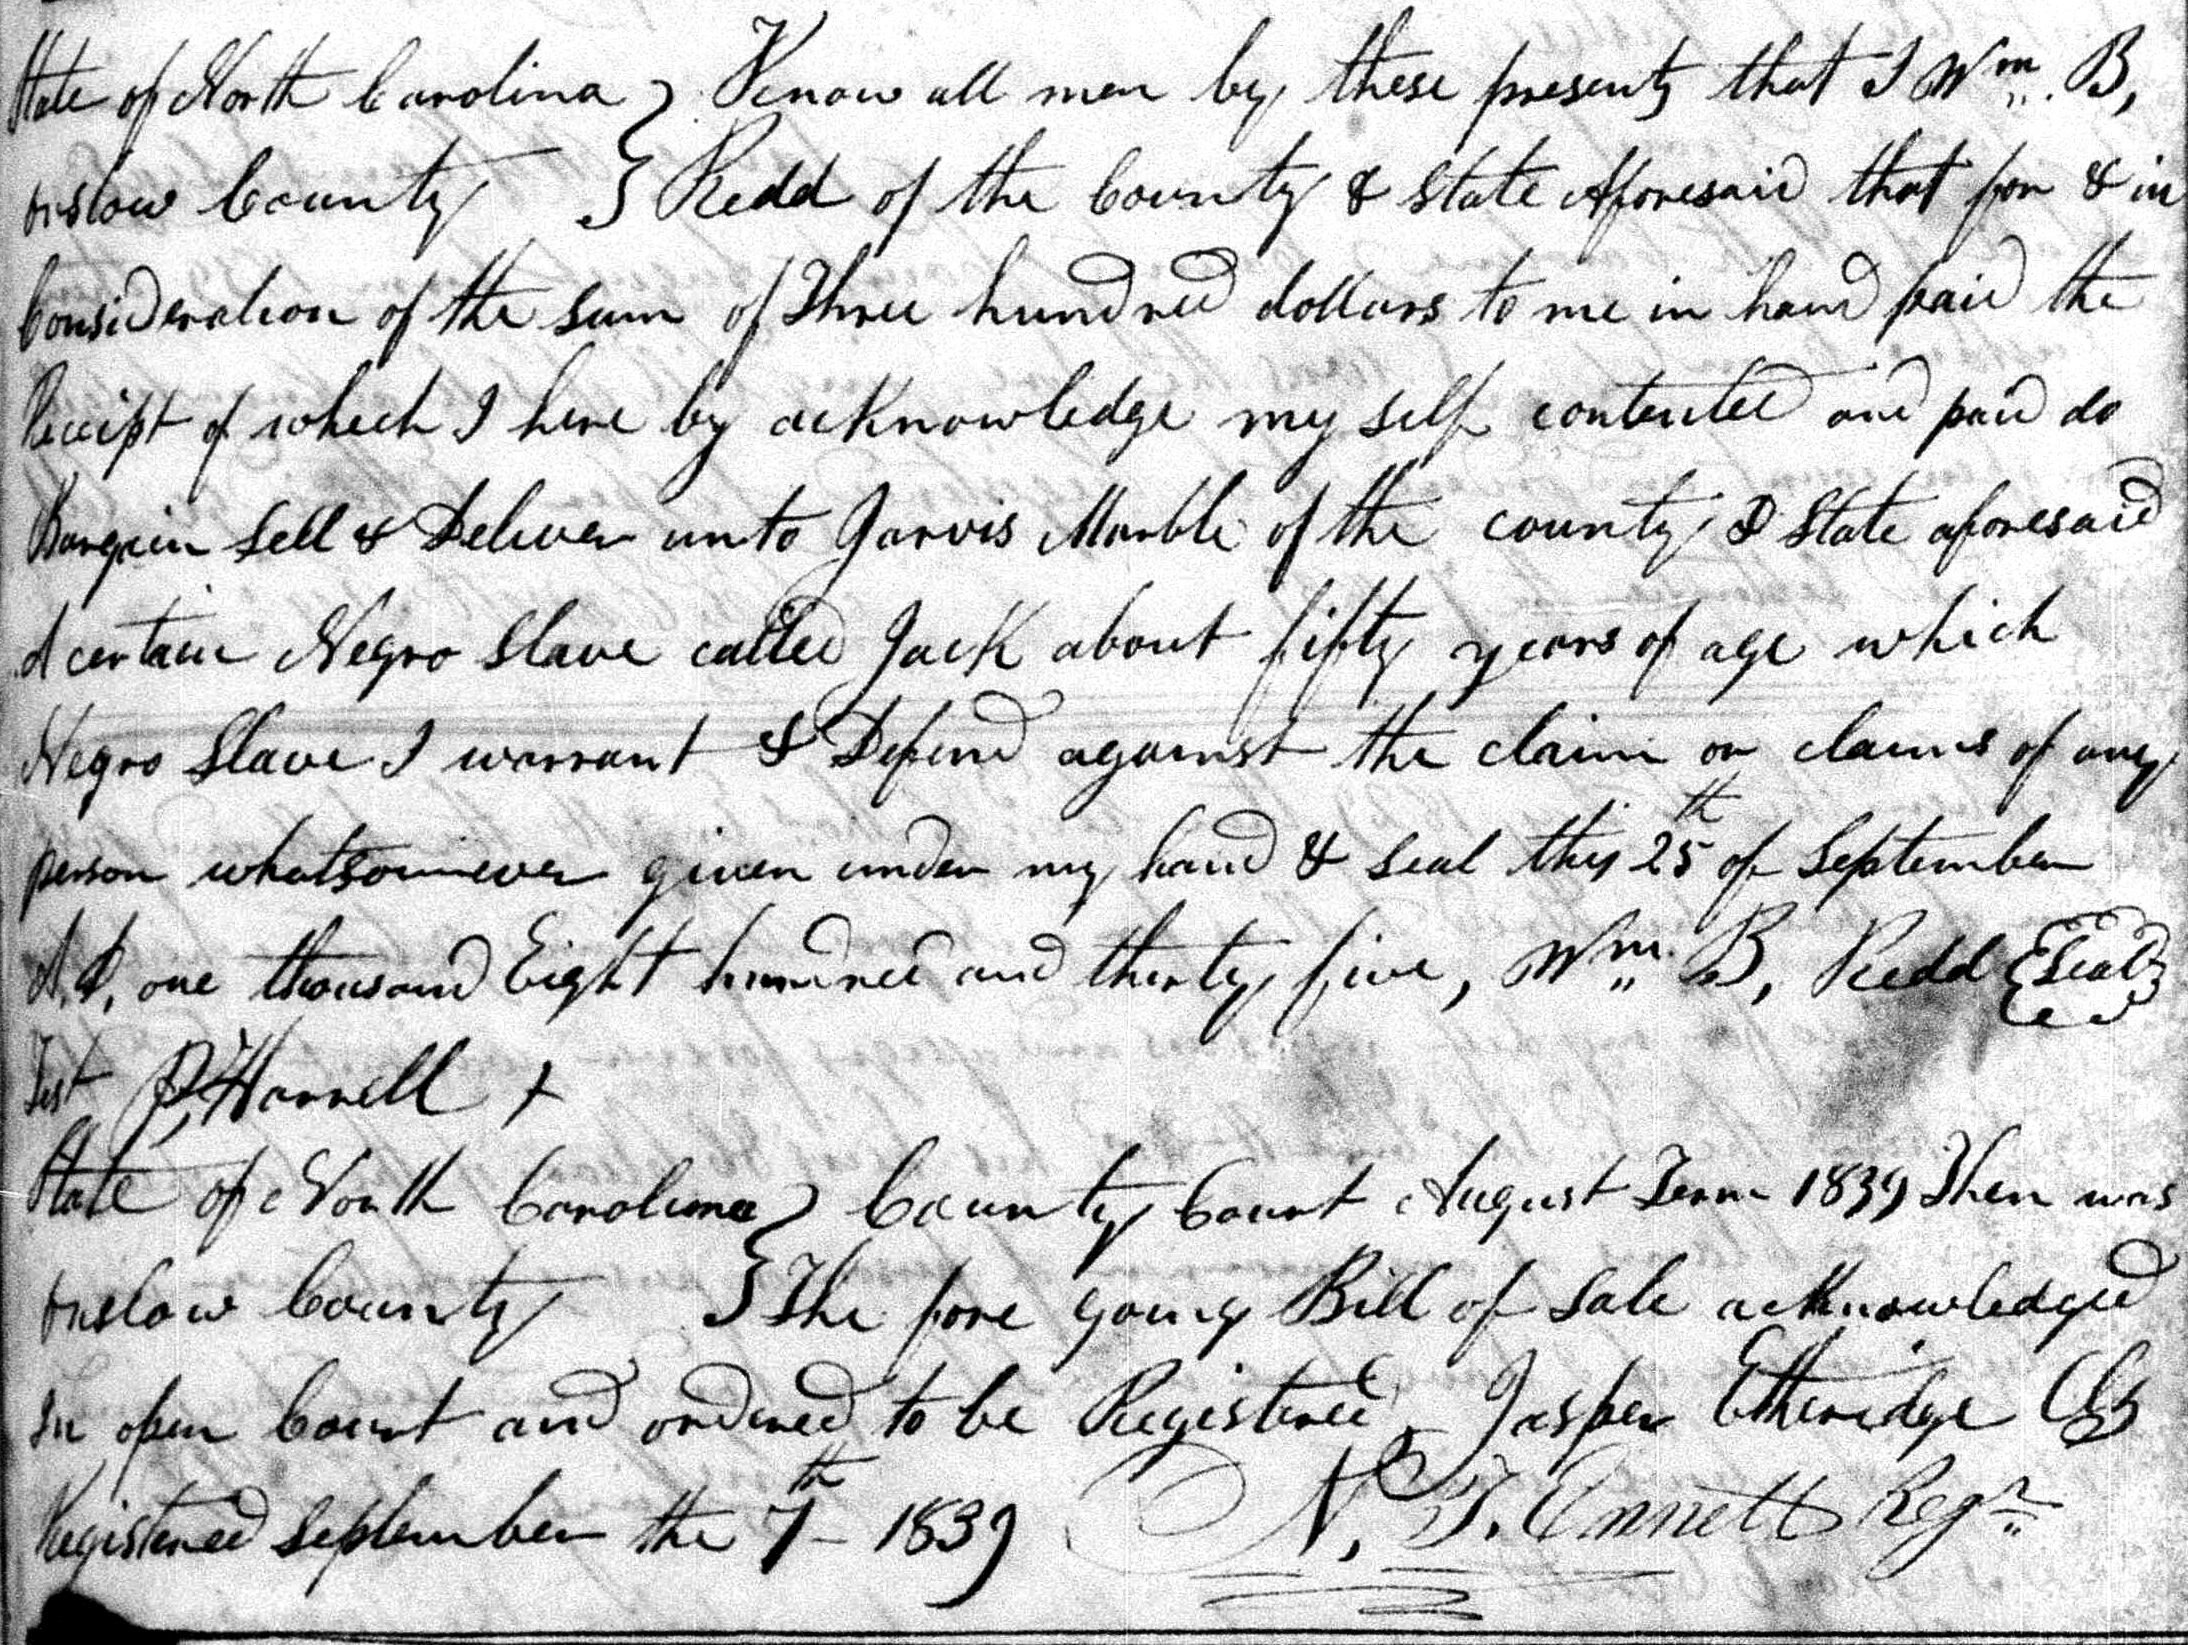 State of North Carolina } Know all men by these presents that I Wm. B,
Onslow County } Redd of the County & State Aforesaid that for & in
Consideration of the sum of Three hundred dollars to me in hand paid the
Receipt of which I here by acKnowledge my self contented and paid do
Bargain Sell & Deliver unto Jarvis Marble of the county & State aforesaid
A certain Negro Slave called Jack about fifty years of age which
Negro Slave I warrant & Defend against the claim or claims of any
person whatsomever given under my hand & seal this 25th of September
A.D, one thousand Eight hundred and thirty five, Wm. B, Redd {Seal}
Test P, Harrell +
State of North Carolina } County Court August Term 1839 Then was
Onslow County } The fore going Bill of Sale acKnowledged
In open Court and ordered to be Registered, Jasper Etheridge Clk
Registered September the 7th 1839 N, T. Ennett Regr.